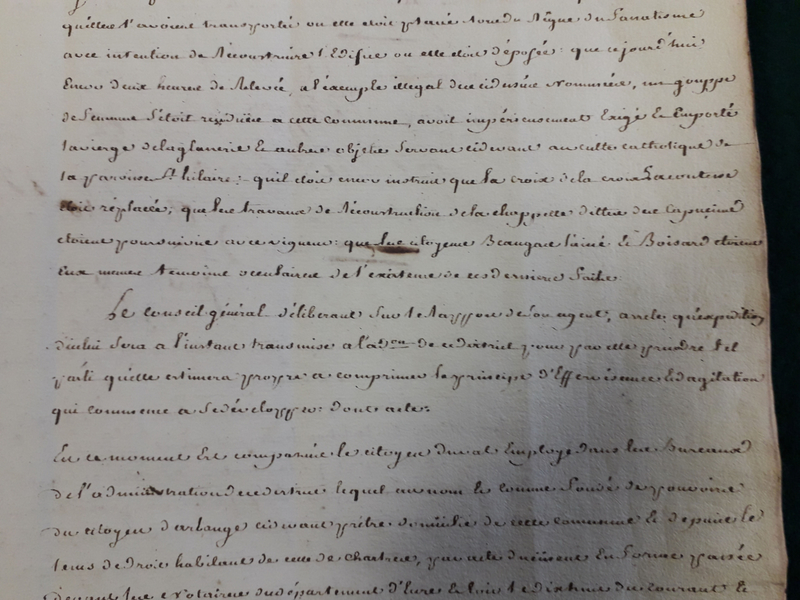 qu'elles l'avoient transportée ou elle etoit placée lors du Règne du fanatisme
avec intention de Réconstruire l'Edifice ou elle etoit déposée: que ce jourd'hui
Environ deux heures de Relevée, a l'éxemple illegal des cidessus Nommées, un grouppe
de femmes S'étoit rendue a cette commune, avoit impérieusement Exigé Et Emporté
la vierge de la glanerie Et autres objets Servant cidevant au culte catholique de
la paroisse St. hilaire: qu'il etoit encor instruit que la croix de la croix
etoit réplacée, que les travaux de Réconstruction de la chappelle ditte des Capucins
etoient poursuivis avec vigueur: que les citoyens Beaugas l'ainé Et Boisard etoient
Eux memes temoins oculaires de l'existence de ces derniers faits.
Le Conseil général déliberant Sur le Rapport de Son agent, arrete qu'expedition
d'icelui Sera a l'instant transmise a l'adon. de ce district pour par elle prendre tel
parti qu'elle estimera propre a comprimer le principe d'Effervescence Et d'agitation
qui commence a Se développer: dont acte:
En ce moment Est comparu le citoyen duval Employé dans les Bureaux
de l'administration de ce district lequel au nom Et comme fondé de pouvoirs
du citoyen darlange cidevant prêtre domicilié de cette commune Et depuis le
tems de droit habitant de celle de Chartres, par acte duement En forme passée
devant les Notaires du département d'Eure Et Loir le dix du courant Et